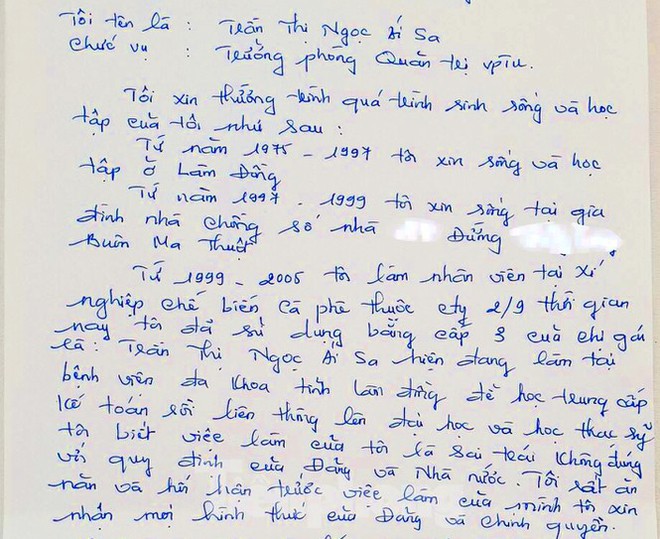 Tôi tên là : Trần Thị Ngọc Ái Sa
Chức vụ : Trưởng phòng Quản trị VPTU.
Tôi xin tường trình quá trình sinh sống và học
tập của tôi như sau :
Từ năm 1975 - 1997 tôi xin sống và học
tập ở Lâm Đồng
Từ năm 1997 - 1999 tôi xin sống tại gia
đình nhà chồng số nhà Đường
Buôn Ma Thuột
Từ 1999 - 2005 tôi làm nhân viên tại xí
nghiệp chế biến cà phê thuộc cty 2/9 thời gian
này tôi đã sử dụng bằng cấp 3 của chị gái
là : Trần Thị Ngọc Ái Sa hiện đang làm tại
bệnh viện đa khoa tỉnh lâm đồng để học trung cấp
kế toán rồi liên thông lên đại học và học thạc sỹ
tôi biết việc làm của tôi là sai trái không đúng
với quy định của Đảng và Nhà nước. Tôi rất ăn
năn và hối hận trước việc làm của mình tôi xin
nhận mọi hình thức của Đảng và chính quyền.